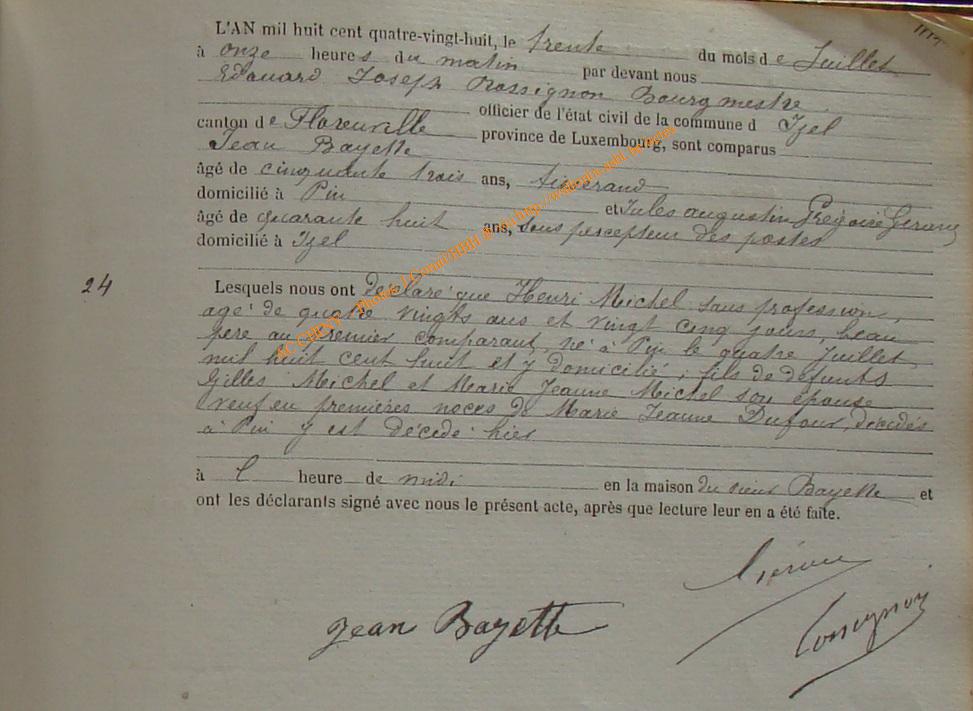 L'AN mil huit cent quatre-vingt-huit, le trente du mois de Juillet
à onze heures du matin par devant nous
Edouard Joseph Rossignon Bourgmestre
officier de l'état civil de la commune d Izel
canton de Florenville province de Luxembourg, sont comparus
Jean Bayette
âgé de cinquante trois ans, tisserand
domicilié à Pin et Jules augustin Grégoire
âgé de quarante huit ans, sous percepteur des postes
domicilié à Izel
24
Lesquels nous ont déclaré que Henri Michel sans profession,
agé de quatre vingts ans et vingt cinq jours, beau
père au premier comparant, né à Pin le quatre Juillet
mil huit cent huit et y domicilié, fils de défunts
Gilles Michel et Marie Jeanne Michel son épouse
veuf en premières noces de Marie Jeanne Dufour, décédés
à Pin y est décédé hier
à l heure de midi en la maison du sieur Bayette et
ont les déclarants signé avec nous le présent acte, après que lecture leur en a été faite.
Jean Bayette
AC CHINY - Photos J.Cornil/HRH &